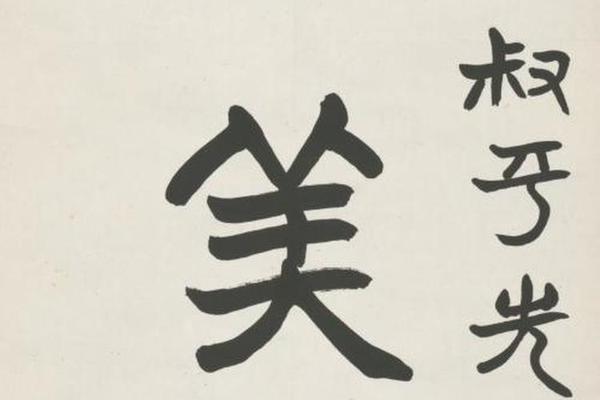 叔平先
美